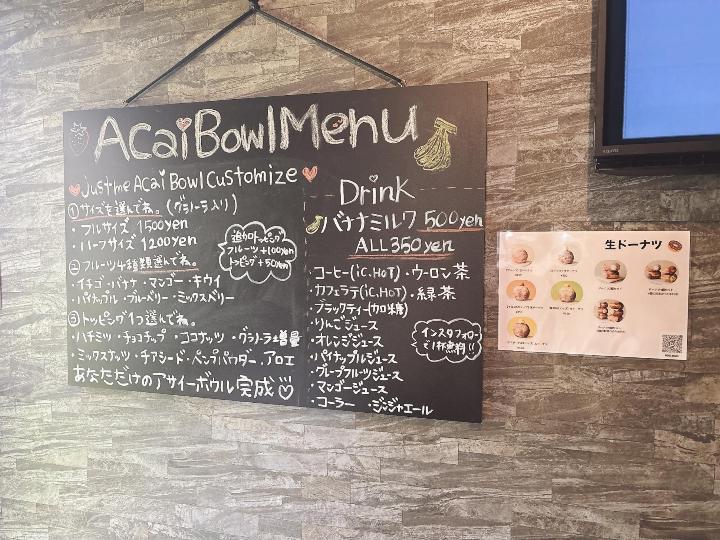 Acai Bowl Menu
just me Acai Bowl Customize
①サイズを選んでね。(グラノーラ入り)
・フルサイズ 1500yen
・ハーフサイズ 1200yen
追加トッピング
フルーツ+100yen
トッピング+50yen
②フルーツ4種類選んでね。
・イチゴ・バナナ・マンゴー・キウイ
・パイナップル・ブルーベリー・ミックスベリー
③トッピング1つ選んでね。
・ハチミツ・チョコチップ・ココナッツ・グラノーラ増量
・ミックスナッツ・チアシード・ヘンプパウダー.アロエ
あなただけのアサイーボウル完成
Drink
バナナミルク 500yen
ALL350yen
・コーヒー(iC.HOT)・ウーロン茶
・カフェラテ(iC.HOT)・緑茶
・ブラックティー(加糖)
・りんごジュース
・オレンジジュース
・パイナップルジュース
・グレープフルーツジュース
・マンゴージュース
・コーラー ・ジンジャエール
インスタフォロー
で1杯無料!!
生ドーナツ